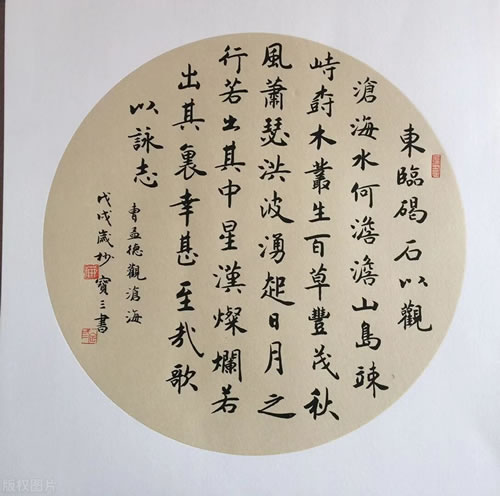 東臨碣石以觀
滄海水何澹澹山島竦
峙樹木叢生百草豐茂秋
風蕭瑟洪波湧起日月之
行若出其中星漢燦爛若
出其裏幸甚至哉歌
以詠志
曹孟德觀滄海
戊戌歲杪寶三書
版权图片